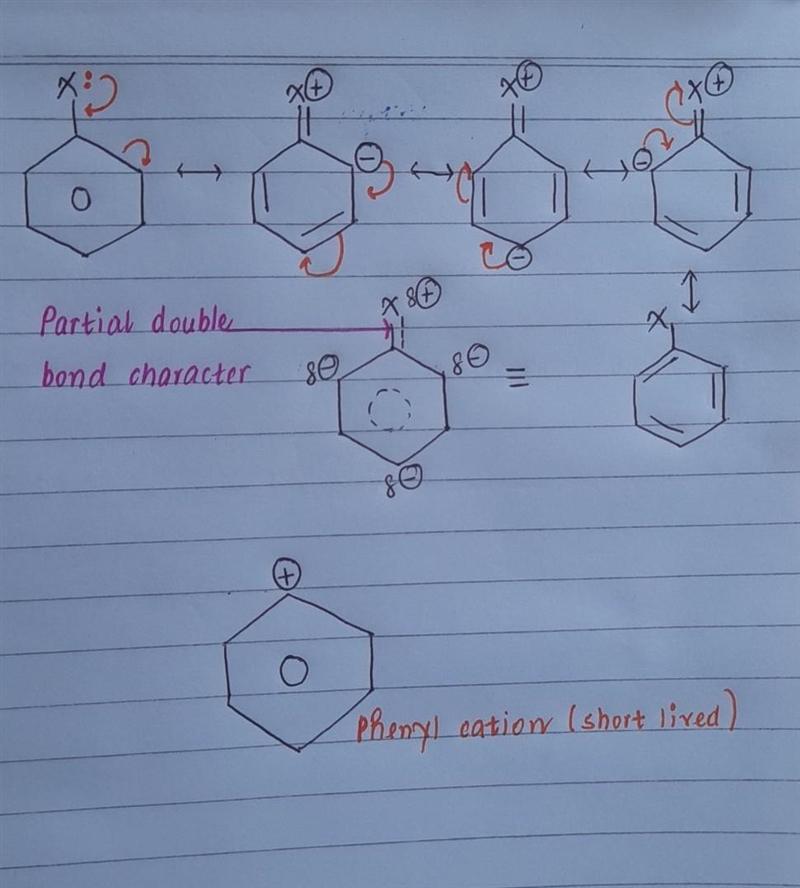 X:
X⊕
X⊕
X⊕
⊖
⊖
⊖
Partial double
bond character
X δ⊕
δ⊖
δ⊖
δ⊖
≡
X
⊕
Phenyl cation (short lived)